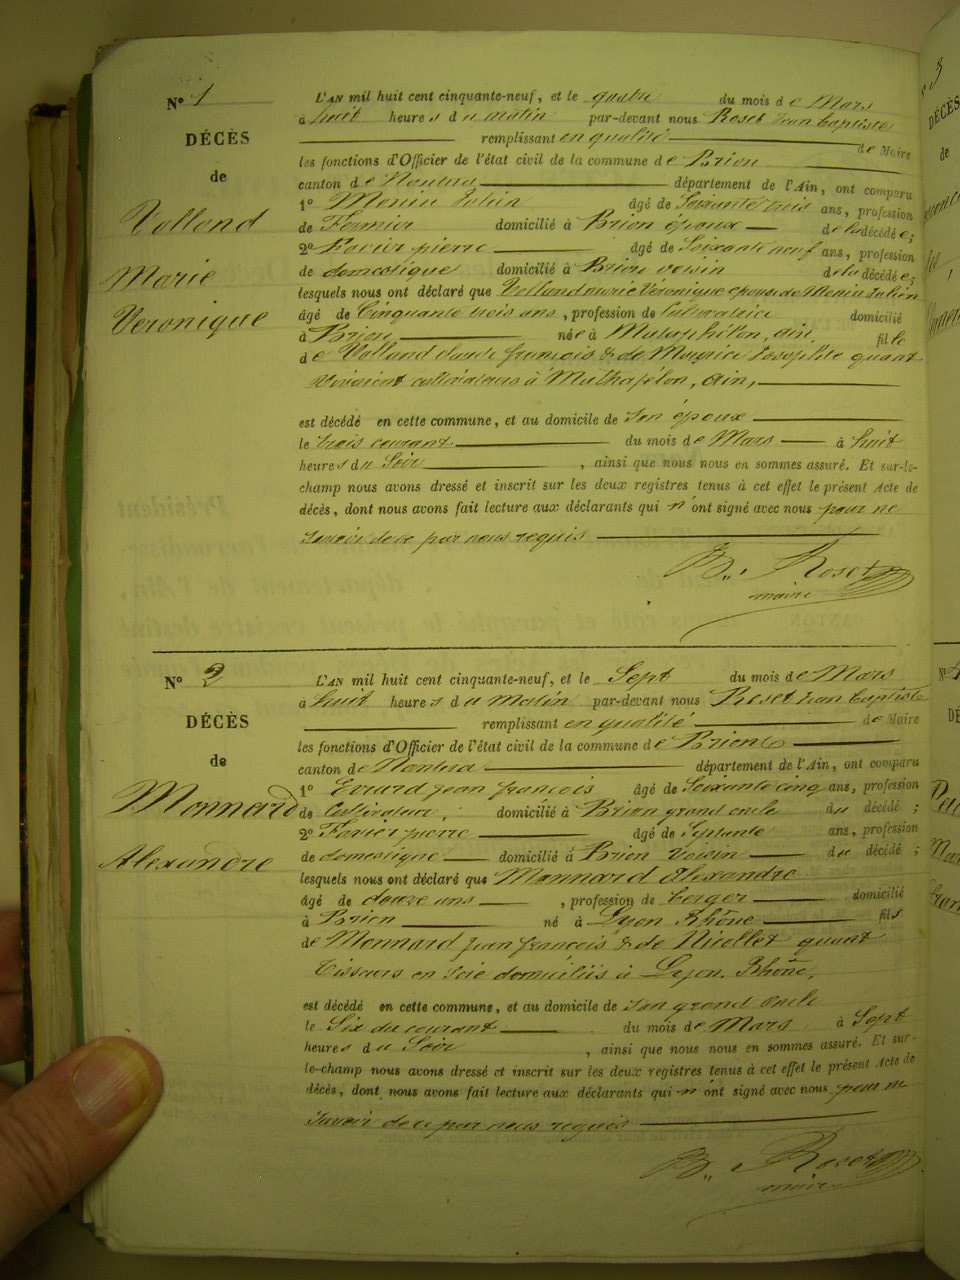 N° 1
DÉCÈS
de
Volland
Marie
Véronique
L'AN mil huit cent cinquante-neuf, et le quatre du mois de Mars
à huit heures du matin par-devant nous Roset Jean Baptiste
remplissant en qualité de Maire
les fonctions d'Officier de l'état civil de la commune de Brion
canton de Nantua département de l'Ain, ont comparu
1° Menin Julien âgé de Soixante trois ans, profession
de Fermier domicilié à Brion époux de la décédée;
2° Favier pierre âgé de Soixante neuf ans, profession
de domestique domicilié à Brion voisin de la décédée;
lesquels nous ont déclaré que Volland marie Véronique epouse de Menin Julien
âgé de Cinquante trois ans, profession de laboratrice domicilié
à Brion née à Matafelon, ain, fille
de Volland claude françois & de Josephte quant
vivaient cultivateurs à Ain,
est décédé en cette commune, et au domicile de son époux
le trois courant du mois de Mars à huit
heures du Soir, ainsi que nous nous en sommes assuré. Et sur-le-
champ nous avons dressé et inscrit sur les deux registres tenus à cet effet le présent Acte de
décès, dont nous avons fait lecture aux déclarants qui n'ont signé avec nous pour ne
Savoir de ce par nous requis
B. Roset
maire
N° 2
DÉCÈS
de
Monnard
Alexandre
L'AN mil huit cent cinquante-neuf, et le Sept du mois de Mars
à huit heures du Matin par-devant nous Roset Jean baptiste
remplissant en qualité de Maire
les fonctions d'Officier de l'état civil de la commune de Brion
canton de Nantua département de l'Ain, ont comparu
1° Evrard jean françois âgé de Soixante cinq ans, profession
de Cultivateur, domicilié à Brion grand oncle du décédé;
2° Favier pierre âgé de Septante ans, profession
de domestique domicilié à Brion Voisin du décédé;
lesquels nous ont déclaré que Monnard Alexandre
âgé de douze ans, profession de berger domicilié
à Brion né à Lyon Rhône fils
de Monnard jean françois & de Nicollet quant
Tisseurs en Soie domiciliés à Lyon, Rhône,
est décédé en cette commune, et au domicile de Son grand Oncle
le Six du courant du mois de Mars à Sept
heures du Soir, ainsi que nous nous en sommes assuré. Et sur-
le-champ nous avons dressé et inscrit sur les deux registres tenus à cet effet le présent Acte de
décès, dont nous avons fait lecture aux déclarants qui n'ont signé avec nous pour ne
Savoir de ce par nous requis
B. Roset
maire